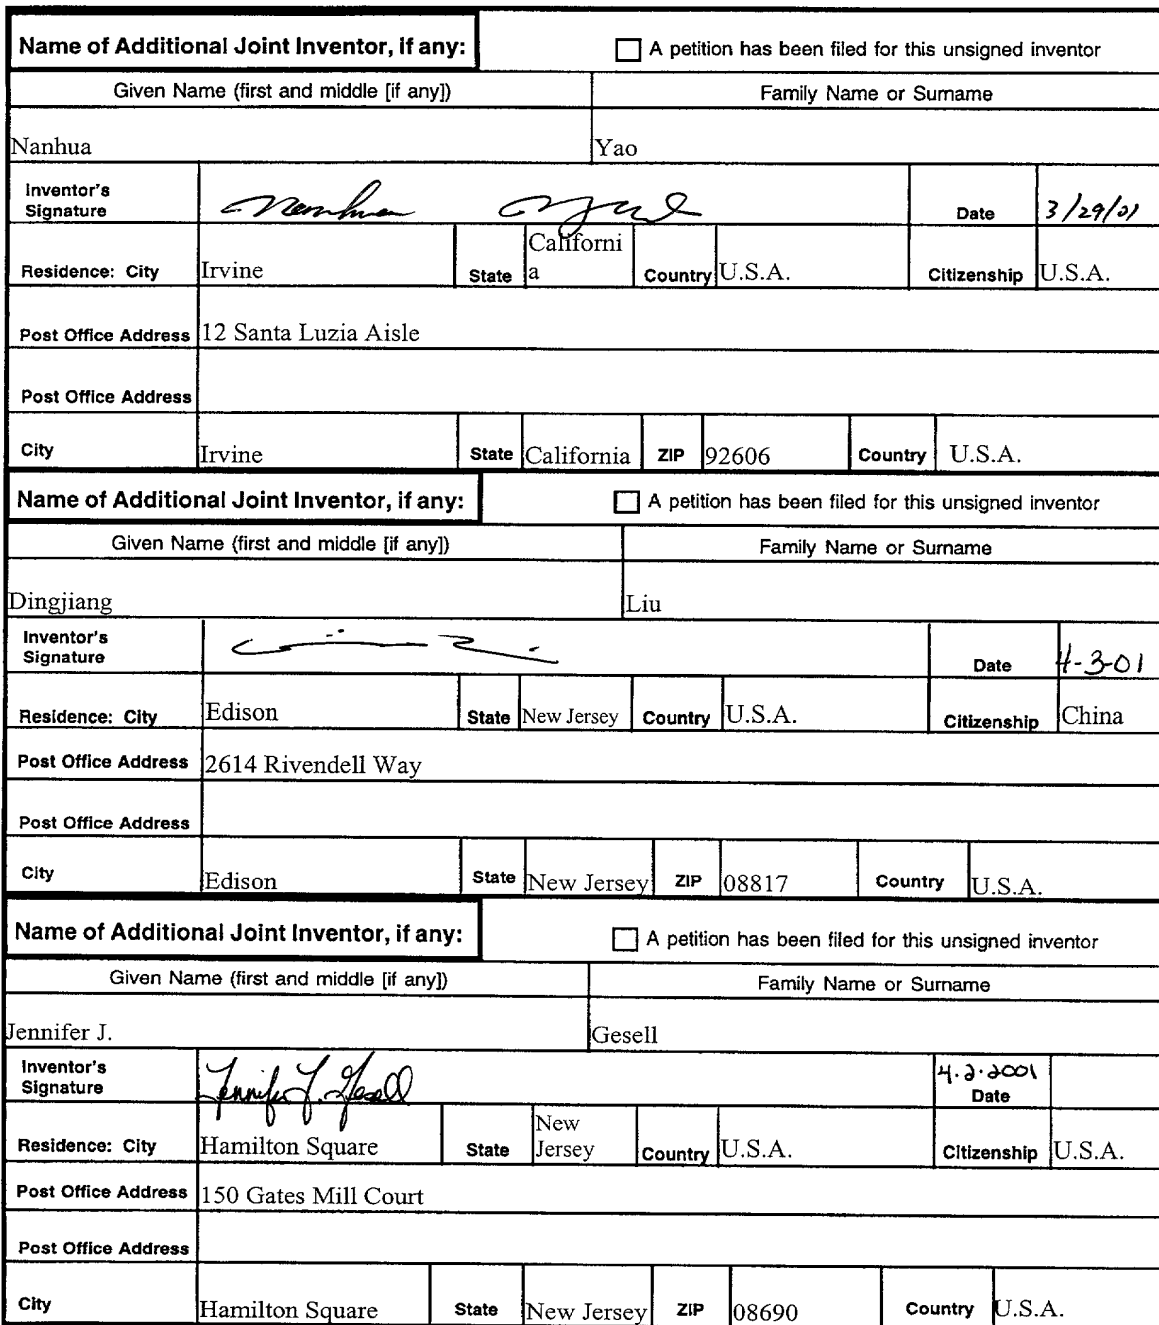 Name of Additional Joint Inventor, if any: A petition has been filed for this unsigned inventor
Given Name (first and middle [if any]) Family Name or Surname
Nanhua Yao
Inventor's
Signature Nanhua Yao Date 3/29/01
Residence: City Irvine State Californi
a Country U.S.A. Citizenship U.S.A.
Post Office Address 12 Santa Luzia Aisle
Post Office Address
City Irvine State California ZIP 92606 Country U.S.A.
Name of Additional Joint Inventor, if any: A petition has been filed for this unsigned inventor
Given Name (first and middle [if any]) Family Name or Surname
Dingjiang Liu
Inventor's
Signature Date 4-3-01
Residence: City Edison State New Jersey Country U.S.A. Citizenship China
Post Office Address 2614 Rivendell Way
Post Office Address
City Edison State New Jersey ZIP 08817 Country U.S.A.
Name of Additional Joint Inventor, if any: A petition has been filed for this unsigned inventor
Given Name (first and middle [if any]) Family Name or Surname
Jennifer J. Gesell
Inventor's
Signature Jennifer J. Gesell 4.2.2001
Date
Residence: City Hamilton Square State New
Jersey Country U.S.A. Citizenship U.S.A.
Post Office Address 150 Gates Mill Court
Post Office Address
City Hamilton Square State New Jersey ZIP 08690 Country U.S.A.